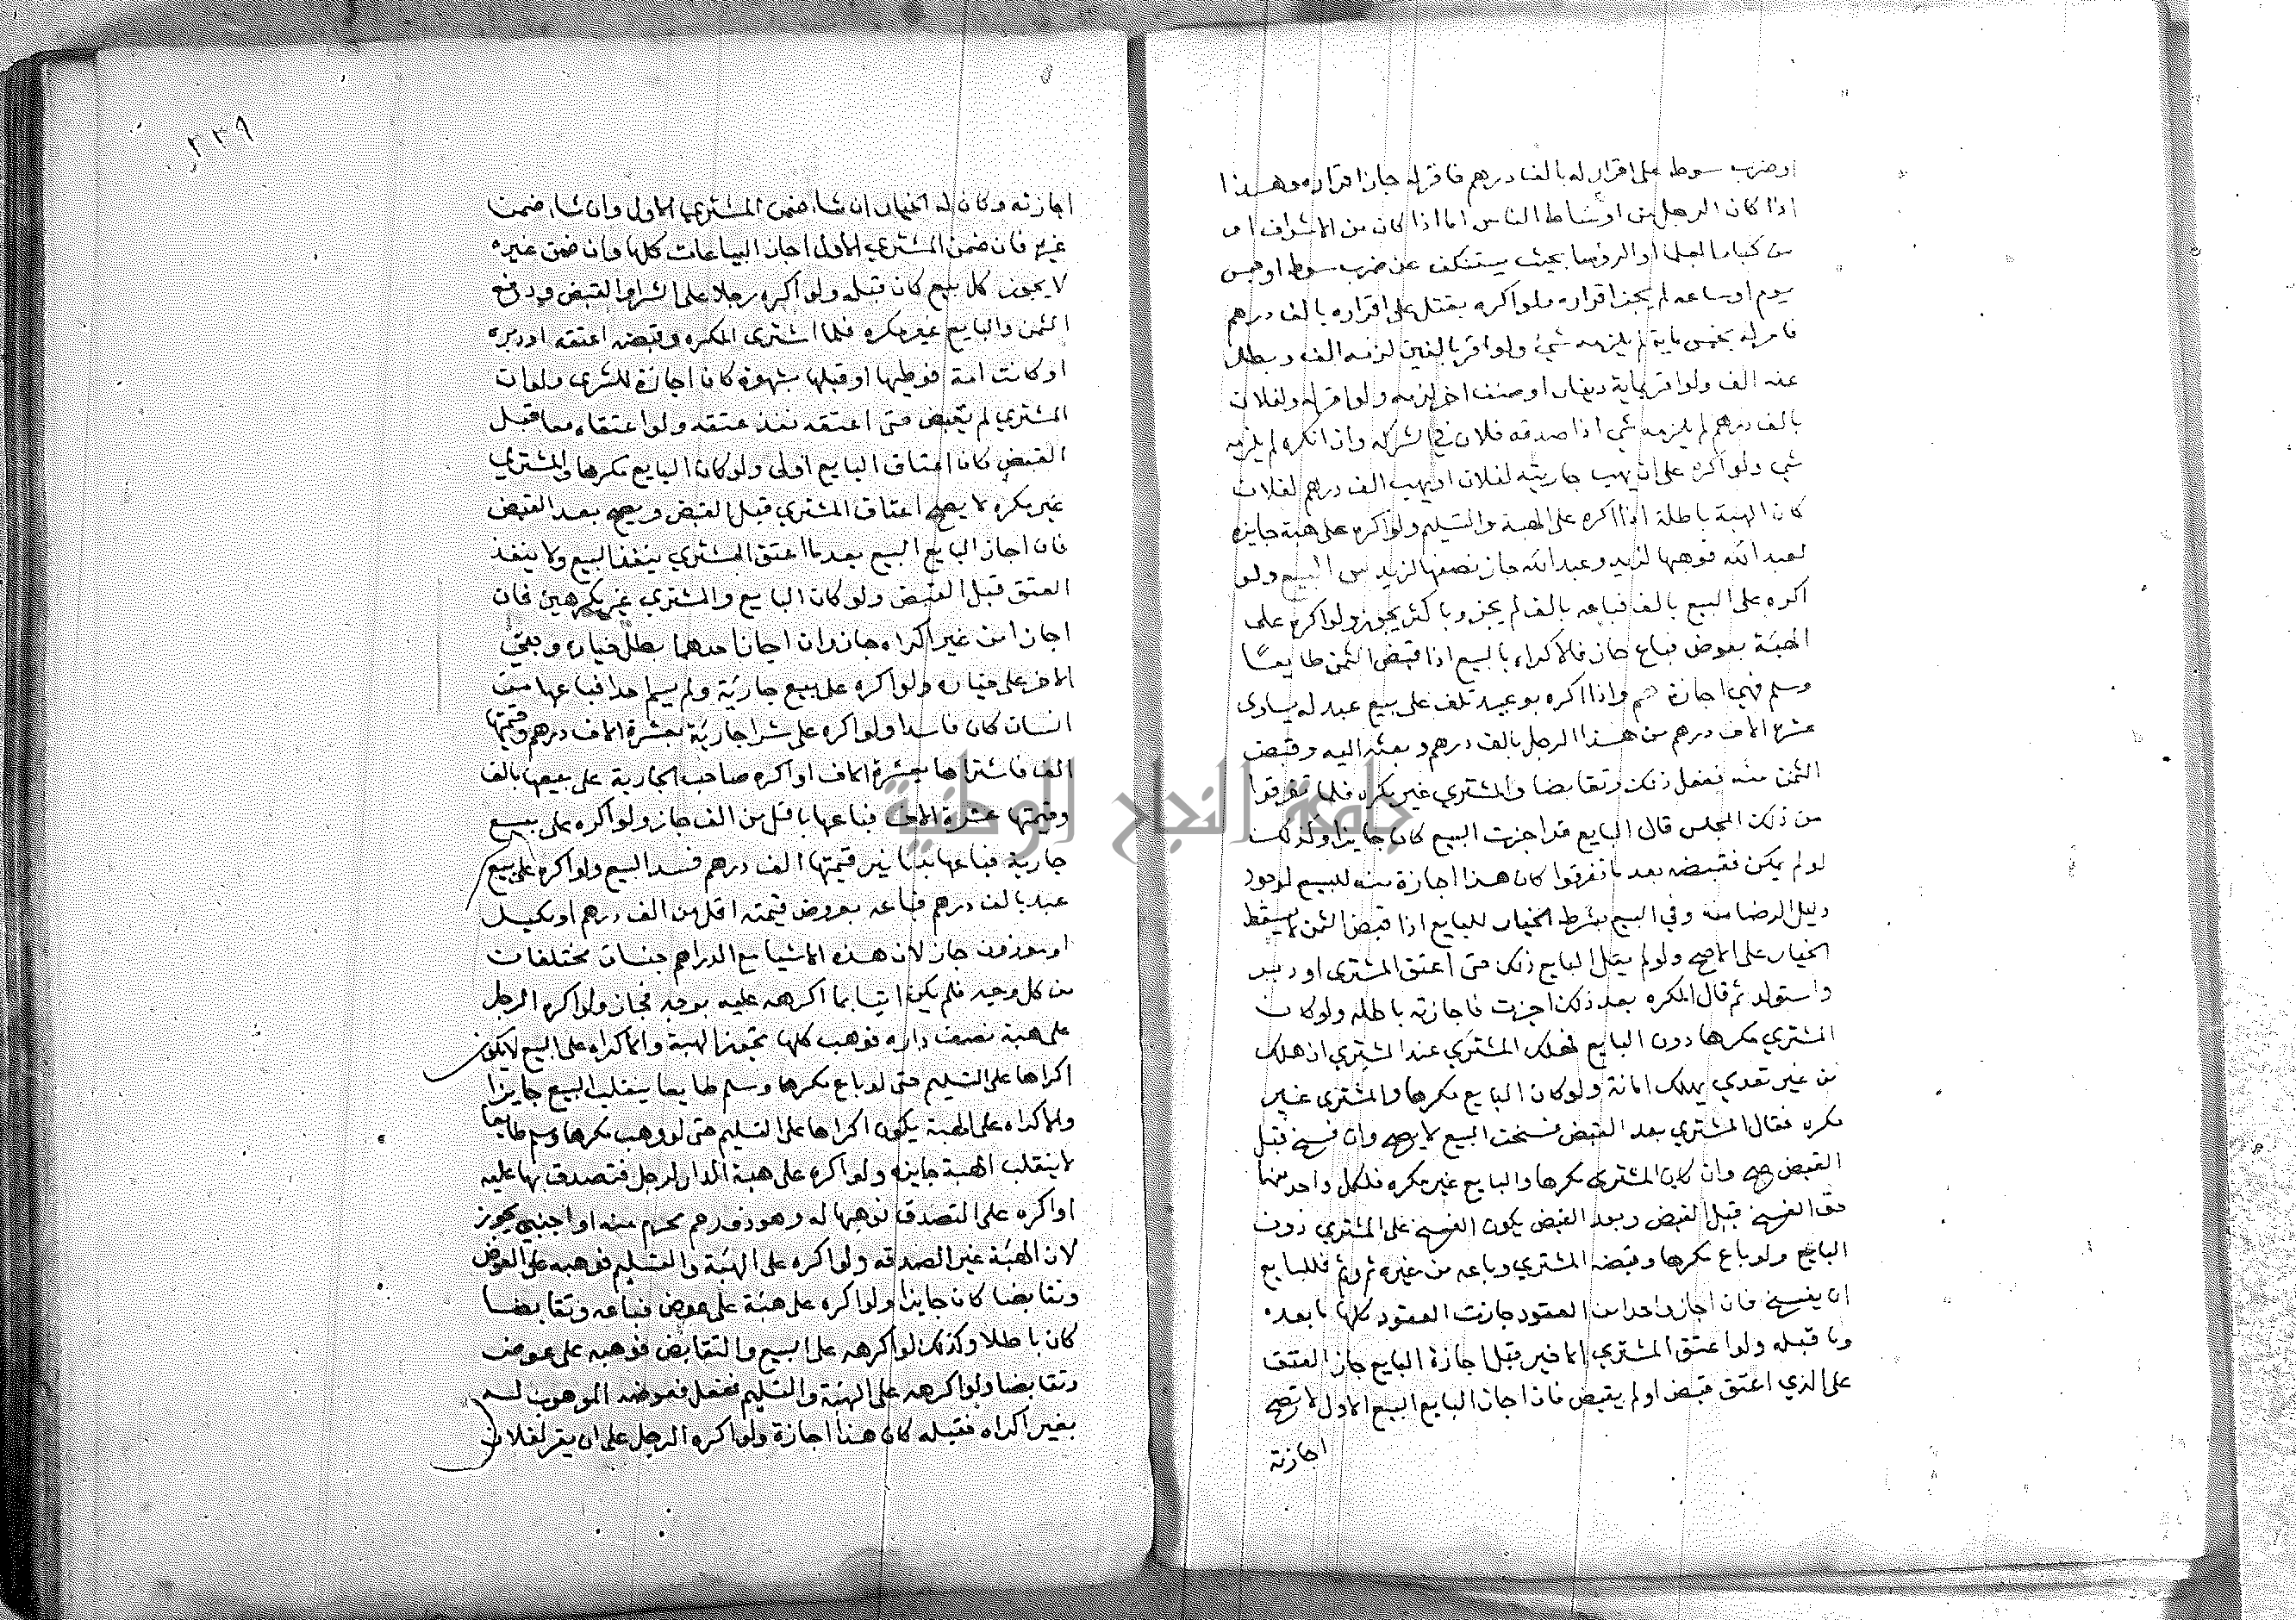 او ضرب سوط على اقرار له بالف درهم فاقر له جاز اقراره وهذا
اذا كان الرجل من اوساط الناس اما اذا كان من الاشراف او
من كبار العلما او الروسا بحيث يستنكف عن ضرب سوط او حبس
يوم او ساعه لم يجز اقراره ولو اكره بقتل على اقراره بالف درهم
فاقر له بخمس ماية لم يلزمه شي ولو اقر بالفين لزمه الف وبطل
عنه الف ولو اقر بماية دينار او صنف اخر لزمه ولو اقر له ولفلان
بالف درهم لم يلزمه شي اذا صدقه فلان في الشركه وان انكره لم يلزمه
شي ولو اكره على ان يهب جاريته لفلان او يهب الف درهم لفلان
كان الهبة باطلة اذا اكره على الهبة والتسليم ولو اكره على هبة جاريه
لعبد الله فوهبها لزيد وعبد الله جاز نصفها لزيد من البيع ولو
اكره على البيع بالف فباعه بالف لم يجز وباكثر يجوز ولو اكره على
الهبة بعوض فباع جاز فالاكراه بالبيع اذا قبض الثمن طايعا
وسلم فهي اجازة واذا اكره بوعيد تلف على بيع عبد له يساوى
عشرة الاف درهم من هذا الرجل بالف درهم وبعثه اليه وقبض
الثمن منه ففعل ذلك وتقابضا والمشتري غير مكره فلما تفرقوا
من ذلك المجلس قال البايع قد اجزت البيع كان جايزا وكذلك
لو لم يكن فقبضه بعد ما تفرقوا كان هذا اجازة منه للبيع لوجود
دليل الرضا منه وفي البيع بشرط الخيار للبايع اذا قبض الثمن لا يسقط
الخيار على الاصح ولو لم يقل البايع ذلك حتى اعتق المشترى او دبر
واستولد ثم قال المكره بعد ذلك اجزت فاجازته باطله ولو كان
المشتري مكرها دون البايع فهلك المشترى عند المشتري ان هلك
من غير تعدي يهلك امانة ولو كان البايع مكرها والمشترى غير
مكره فقال المشتري بعد القبض فسخت البيع لا يصح وان فسخ قبل
القبض صح وان كان المشترى مكرها والبايع غير مكره فلكل واحد منهما
حق الفسخ قبل القبض وبعد القبض يكون الفسخ على المشتري دون
البايع ولو باع مكرها وقبضه المشتري وباعه من غيره ثم وثم فللبايع
ان يفسخ فان اجاز واحدا من العقود جازت العقود كلها ما بعده
وما قبله ولو اعتق المشتري الاخير قبل اجازة البايع جاز العتق
على الذي اعتق قبض او لم يقبض فان اجاز البايع البيع الاول لا تصح
اجازته
٢٣٩
اجازته وكان له الخيار ان شا ضمن المشترى الاول وان شا ضمن
غيره فان ضمن المشتري الاول اجاز البياعات كلها وان ضمن غيره
لا يجوز كل بيع كان قبله ولو اكره رجلا على الشرا والقبض ودفع
الثمن والبايع غير مكره فلما اشترى المكره وقبضه اعتقه او دبره
او كانت امة فوطيها او قبلها بشهوة كان اجازة للشرى ولو ان
المشتري لم يقبض حتى اعتقه نفذ عتقه ولو اعتقاه معا قبل
القبض كان اعتاق البايع اولى ولو كان البايع مكرها والمشتري
غير مكره لا يصح اعتاق المشتري قبل القبض ويصح بعد القبض
فان اجاز البايع البيع بعد ما اعتق المشترى ينفذ البيع ولا ينفذ
العتق قبل القبض ولو كان البايع والمشتري غير مكرهين فان
اجازا من غير اكراه جاز وان اجاز احدهما بطل خياره وبقي
الاخر على خياره ولو اكره على بيع جارية ولم يسم احدا فباعها من
انسان كان فاسدا ولو اكره على شرا جارية بعشرة الاف درهم وقيمتها
الف فاشتراها بعشرة الاف او اكره صاحب الجارية على بيعها بالف
وقيمتها عشرة الاف فباعها باقل من الف جاز ولو اكره على بيع
جارية فباعها بدنانير قيمتها الف درهم فسد البيع ولو اكره على بيع
عبد بالف درهم فباعه بعروض قيمته اقل من الف درهم او مكيل
او موزون جاز لان هذه الاشيا مع الدراهم جنسان مختلفان
من كل وجه فلم يكن اتيا بما اكرهه عليه بوجه فجاز ولو اكره الرجل
على هبة نصف داره فوهب كلها تجوز الهبة والاكراه على البيع لا يكون
اكراها على التسليم حتى لو باع مكرها وسلم طايعا ينقلب البيع جايزا
والاكراه على الهبة يكون اكراها على التسليم حتى لو وهب مكرها وسلم طايعا
لا ينقلب الهبة جايزه ولو اكره على هبة الدار لرجل فتصدق بها عليه
او اكره على التصدق فوهبها له وهو ذو رحم محرم منه او اجنبي يجوز
لان الهبة غير الصدقه ولو اكره على الهبة والتسليم فوهبه على العوض
وتقابضا كان جايزا ولو اكره على هبة على عوض فباعه وتقابضا
كان باطلا وكذلك لو اكرهه على البيع والتقابض فوهبه على عوض
وتقابضا ولو اكرهه على الهبة والتسليم ففعل فعوضه الموهوب له
بغير اكراه فقبله كان هذا اجازة ولو اكره الرجل على ان يقر لفلان
جامعة النجاح الوطنية